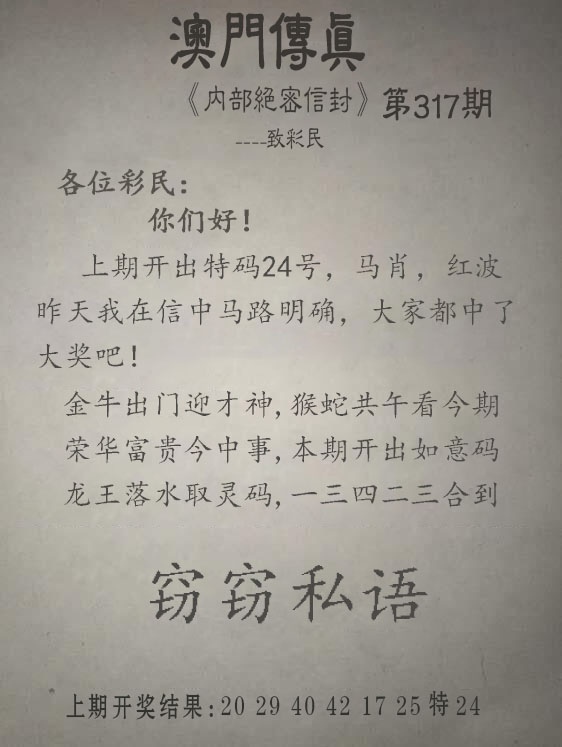 澳門傳眞
《内部絕密信封》第317期
----致彩民
各位彩民：
你们好！
上期开出特码24号，马肖，红波
昨天我在信中马路明确，大家都中了
大奖吧！
金牛出门迎才神,猴蛇共午看今期
荣华富贵今中事,本期开出如意码
龙王落水取灵码,一三四二三合到
窃窃私语
上期开奖结果:20 29 40 42 17 25 特 24